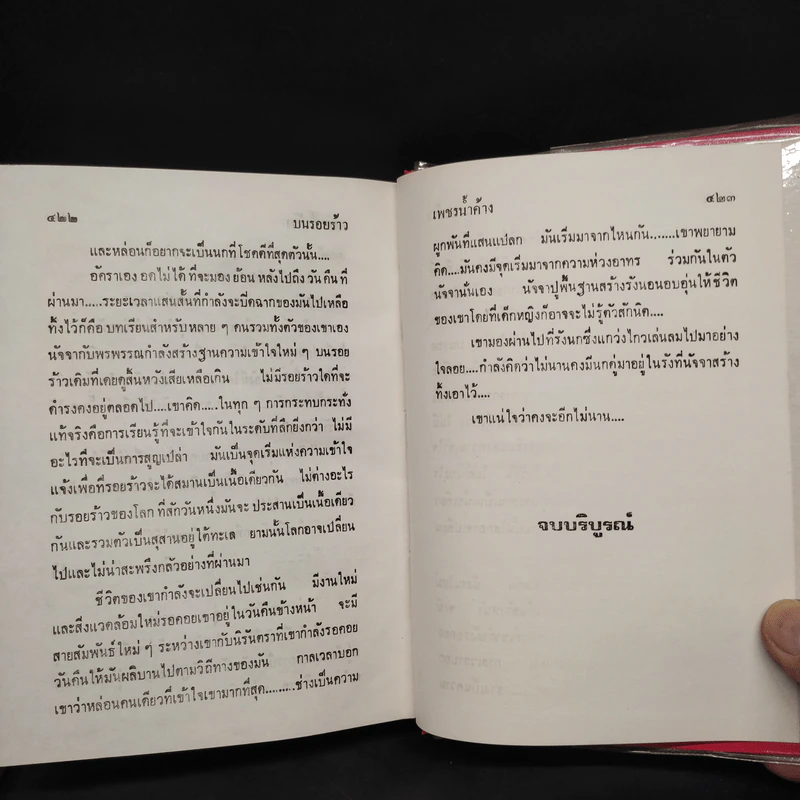 ๔๒๒
บนรอยร้าว
และหล่อนก็อยากจะเป็นนกที่โชคดีที่สุดตัวนั้น....
อัคราเอง อดไม่ได้ที่จะมองย้อน หลังไปถึงวันคืนที่
ผ่านมา.....ระยะเวลาแสนสั้นที่กำลังจะปิดฉากของมันไปเหลือ
ทิ้งไว้ก็คือ บทเรียนสำหรับหลาย ๆ คนรวมทั้งตัวของเขาเอง
นัจจากับพรพรรณกำลังสร้างฐานความเข้าใจใหม่ ๆ บนรอย
ร้าวเดิมที่เคยดูสิ้นหวังเสียเหลือเกิน ไม่มีรอยร้าวใดที่จะ
ดำรงคงอยู่ตลอดไป....เขาคิด....ในทุก ๆ การกระทบกระทั่ง
แท้จริงคือการเรียนรู้ที่จะเข้าใจกันในระดับที่ลึกยิ่งกว่า ไม่มี
อะไรที่จะเป็นการสูญเปล่า มันเป็นจุดเริ่มแห่งความเข้าใจ
แจ้งเพื่อที่รอยร้าวจะได้สมานเป็นเนื้อเดียวกัน ไม่ต่างอะไร
กับรอยร้าวของโลก ที่สักวันหนึ่งมันจะ ประสานเป็นเนื้อเดียว
กันและรวมตัวเป็นสุสานอยู่ใต้ทะเล ยามนั้นโลกอาจเปลี่ยน
ไปและไม่น่าสะพรึงกลัวอย่างที่ผ่านมา
ชีวิตของเขากำลังจะเปลี่ยนไปเช่นกัน มีงานใหม่
และสิ่งแวดล้อมใหม่รอคอยเขาอยู่ในวันคืนข้างหน้า จะมี
สายสัมพันธ์ใหม่ ๆ ระหว่างเขากับนิรันตราที่เขากำลังรอคอย
วันคืนให้มันผลิบานไปตามวิถีทางของมัน กาลเวลาบอก
เขาว่าหล่อนคนเดียวที่เข้าใจเขามากที่สุด.........ช่างเป็นความ
เพชรน้ำค้าง
๔๒๓
ผูกพันที่แสนแปลก มันเริ่มมาจากไหนกัน.......เขาพยายาม
คิด....มันคงมีจุดเริ่มมาจากความห่วงอาทร ร่วมกันในตัว
นัจจานั่นเอง นัจจาปูพื้นฐานสร้างรังนอนอบอุ่นให้ชีวิต
ของเขาโดยที่เด็กหญิงก็อาจจะไม่รู้ตัวสักนิด....
เขามองผ่านไปที่รังนกซึ่งแกว่งไกวเล่นลมไปมาอย่าง
ใจลอย....กำลังคิดว่าไม่นานคงมีนกคู่มาอยู่ในรังที่นัจจาสร้าง
ทิ้งเอาไว้....
เขาแน่ใจว่าคงจะอีกไม่นาน....
จบบริบูรณ์